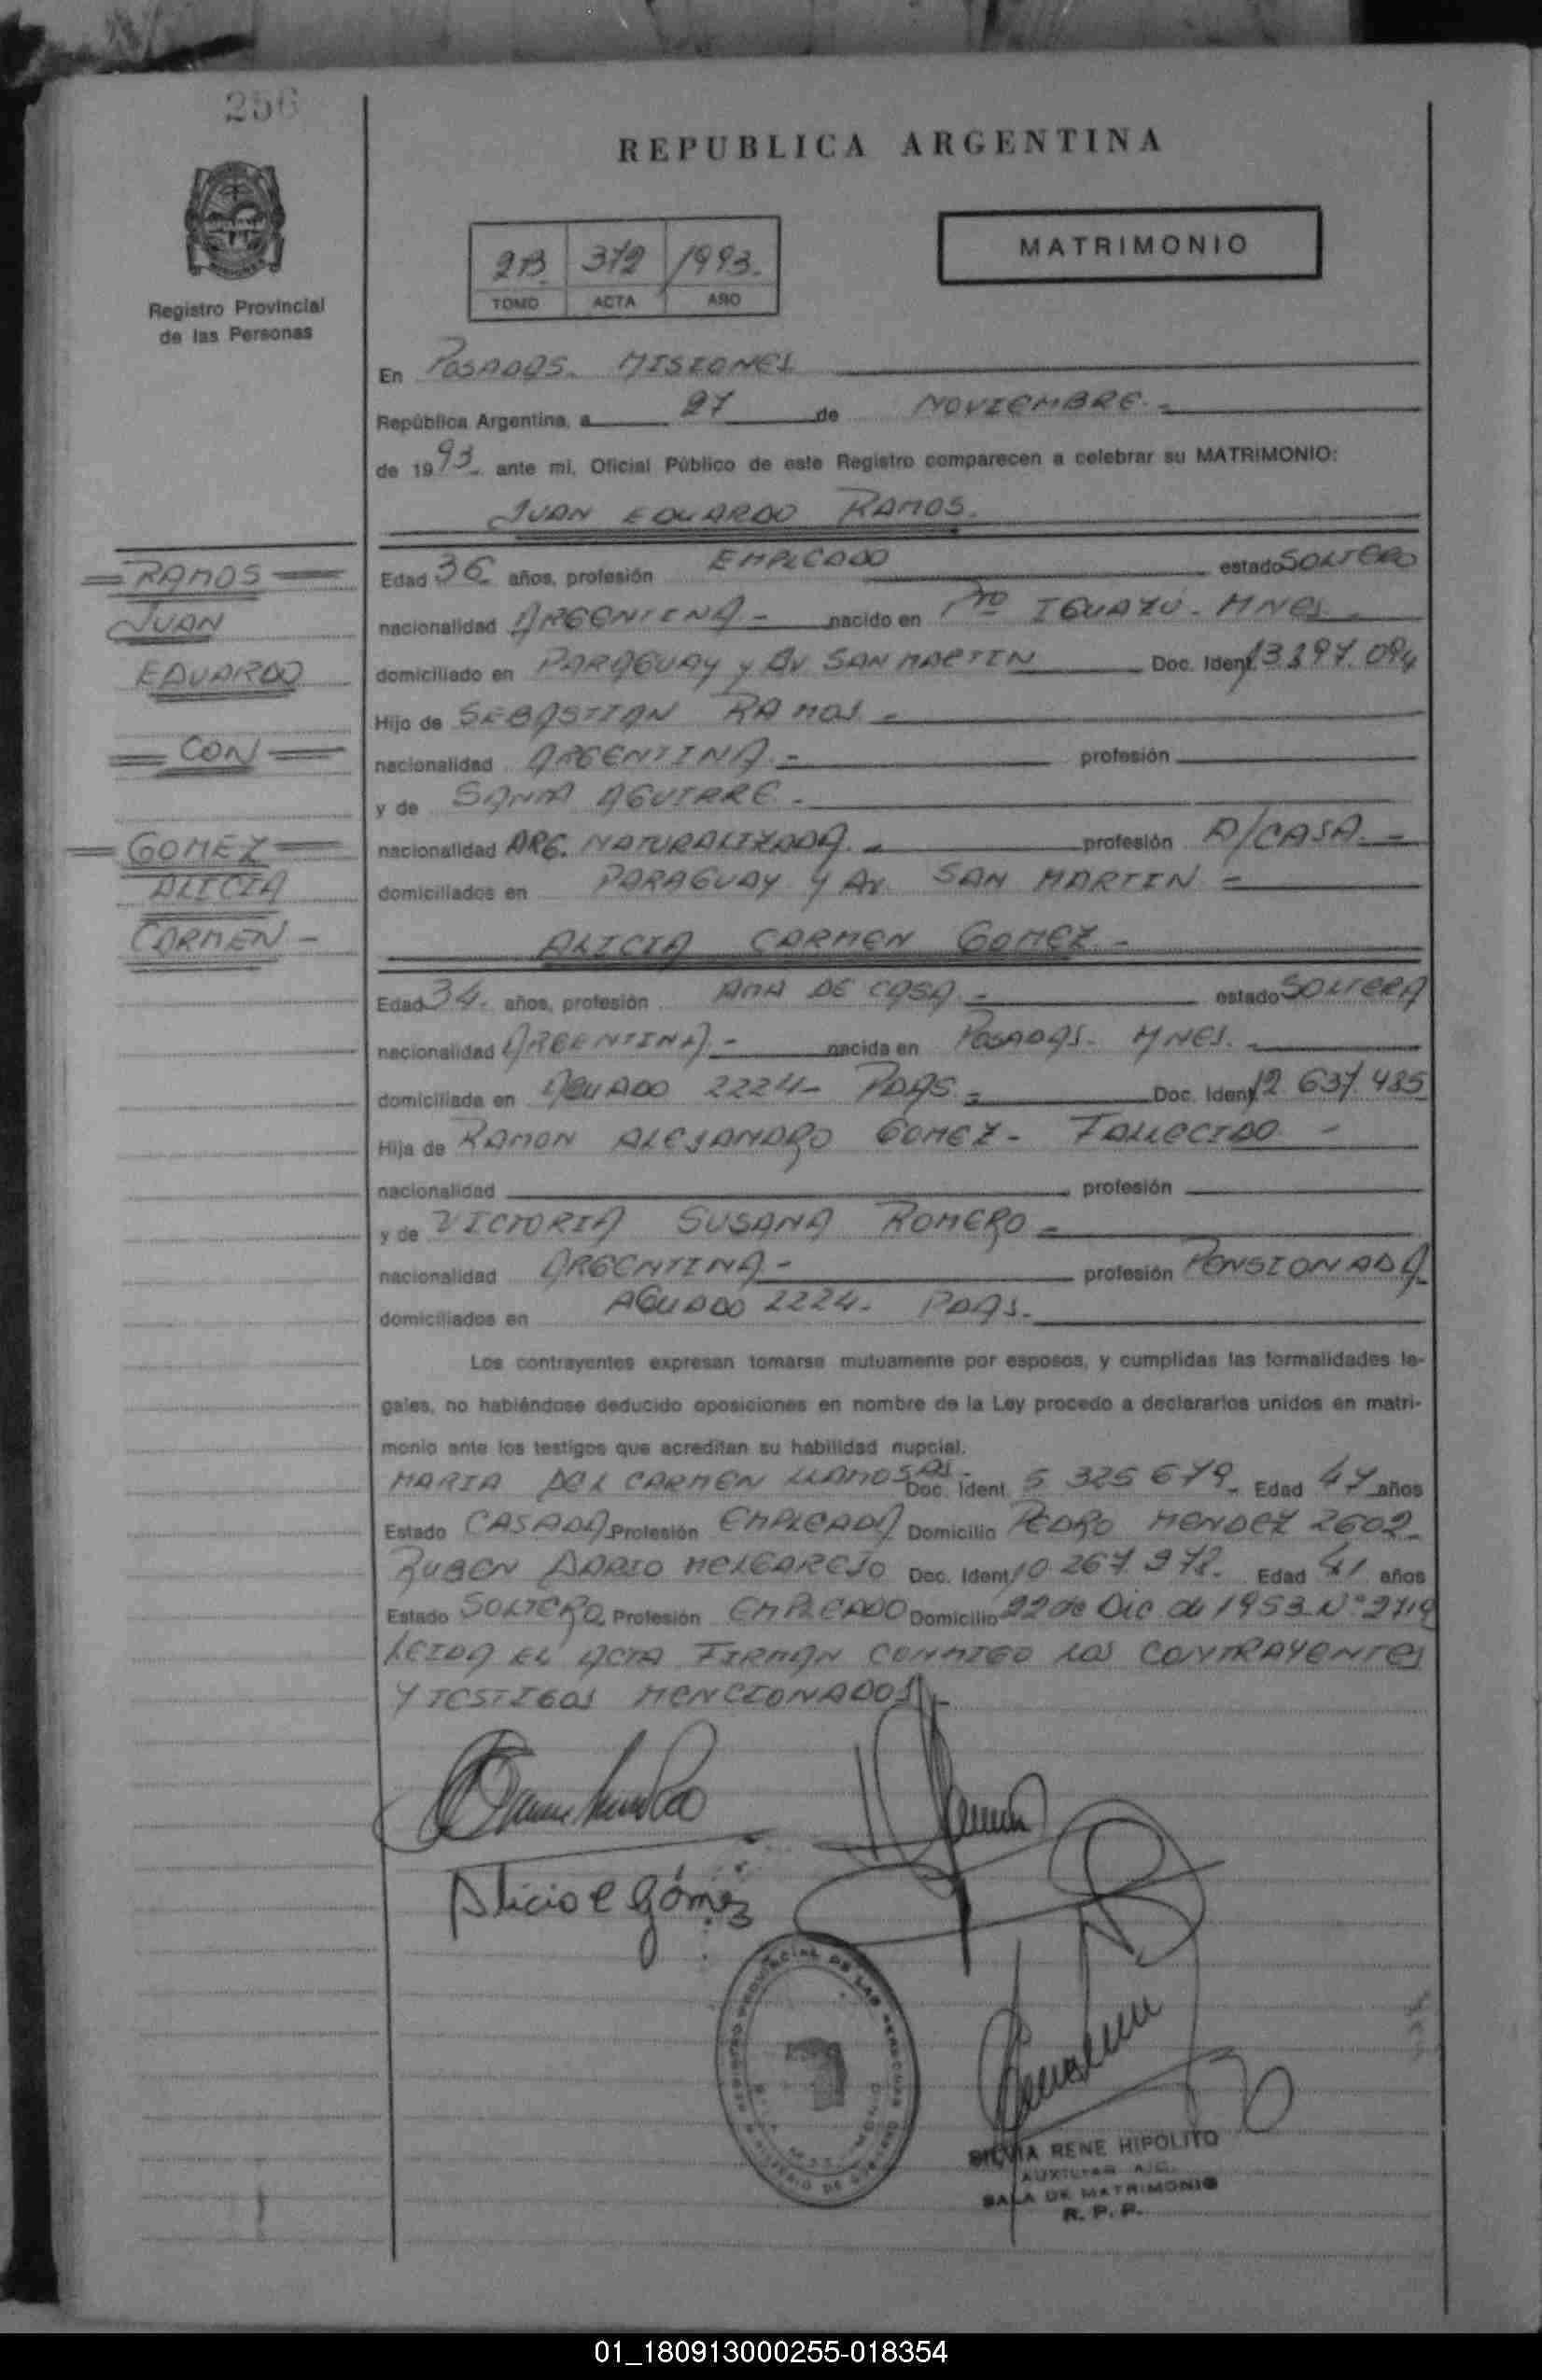 256
REPUBLICA ARGENTINA
2B 372 1993.
TOMO ACTA AÑO
MATRIMONIO
Registro Provincial
de las Personas
En POSADAS. MISIONES
República Argentina, a 27 de NOVIEMBRE.-
de 1993. ante mi, Oficial Público de este Registro comparecen a celebrar su MATRIMONIO:
JUAN EDUARDO RAMOS.
RAMOS
JUAN
EDUARDO
CON
GOMEZ
ALICIA
CARMEN -
Edad 36 años, profesión EMPLEADO estado SOLTERO
nacionalidad ARGENTINA - nacido en Pto IGUAZÚ - MNES -
domiciliado en PARAGUAY y AV SAN MARTIN Doc. Ident. 13.297.094
Hijo de SEBASTIAN RAMOS -
nacionalidad ARGENTINA.- profesión
y de SANTA AGUIRRE -
nacionalidad ARG. NATURALIZADA.- profesión A/CASA.-
domiciliados en PARAGUAY y AV. SAN MARTIN -
ALICIA CARMEN GOMEZ -
Edad 34. años, profesión AMA DE CASA.- estado SOLTERA
nacionalidad ARGENTINA - nacida en POSADAS - MNES. -
domiciliada en AGUADO 2224 - PDAS - Doc. Ident. 12 637.485
Hija de RAMON ALEJANDRO GOMEZ - FALLECIDO -
nacionalidad profesión
y de VICTORIA SUSANA ROMERO -
nacionalidad ARGENTINA - profesión PENSIONADA
domiciliados en AGUADO 2224. PDAS.
Los contrayentes expresan tomarse mutuamente por esposos, y cumplidas las formalidades le-
gales, no habiéndose deducido oposiciones en nombre de la Ley procedo a declararlos unidos en matri-
monio ante los testigos que acreditan su habilidad nupcial.
MARIA DEL CARMEN LLAMOSAS. Doc. Ident. 5 325 679. Edad 47 años
Estado CASADA Profesión EMPLEADA Domicilio PEDRO MENDEZ 2602
RUBEN DARIO MELGAREJO Doc. Ident. 10 267 972. Edad 41 años
Estado SOLTERO Profesión EMPLEADO Domicilio 22 de Dic de 1953 N° 2719
LEIDA EL ACTA FIRMAN CONMIGO LOS CONTRAYENTES
Y TESTIGOS MENCIONADOS
Alicia C Gómez
REGISTRO PROVINCIAL DE LAS PERSONAS
SILVIA RENE HIPOLITO
AUXILIAR
SALA DE MATRIMONIO
R. P. P.
01_180913000255-018354